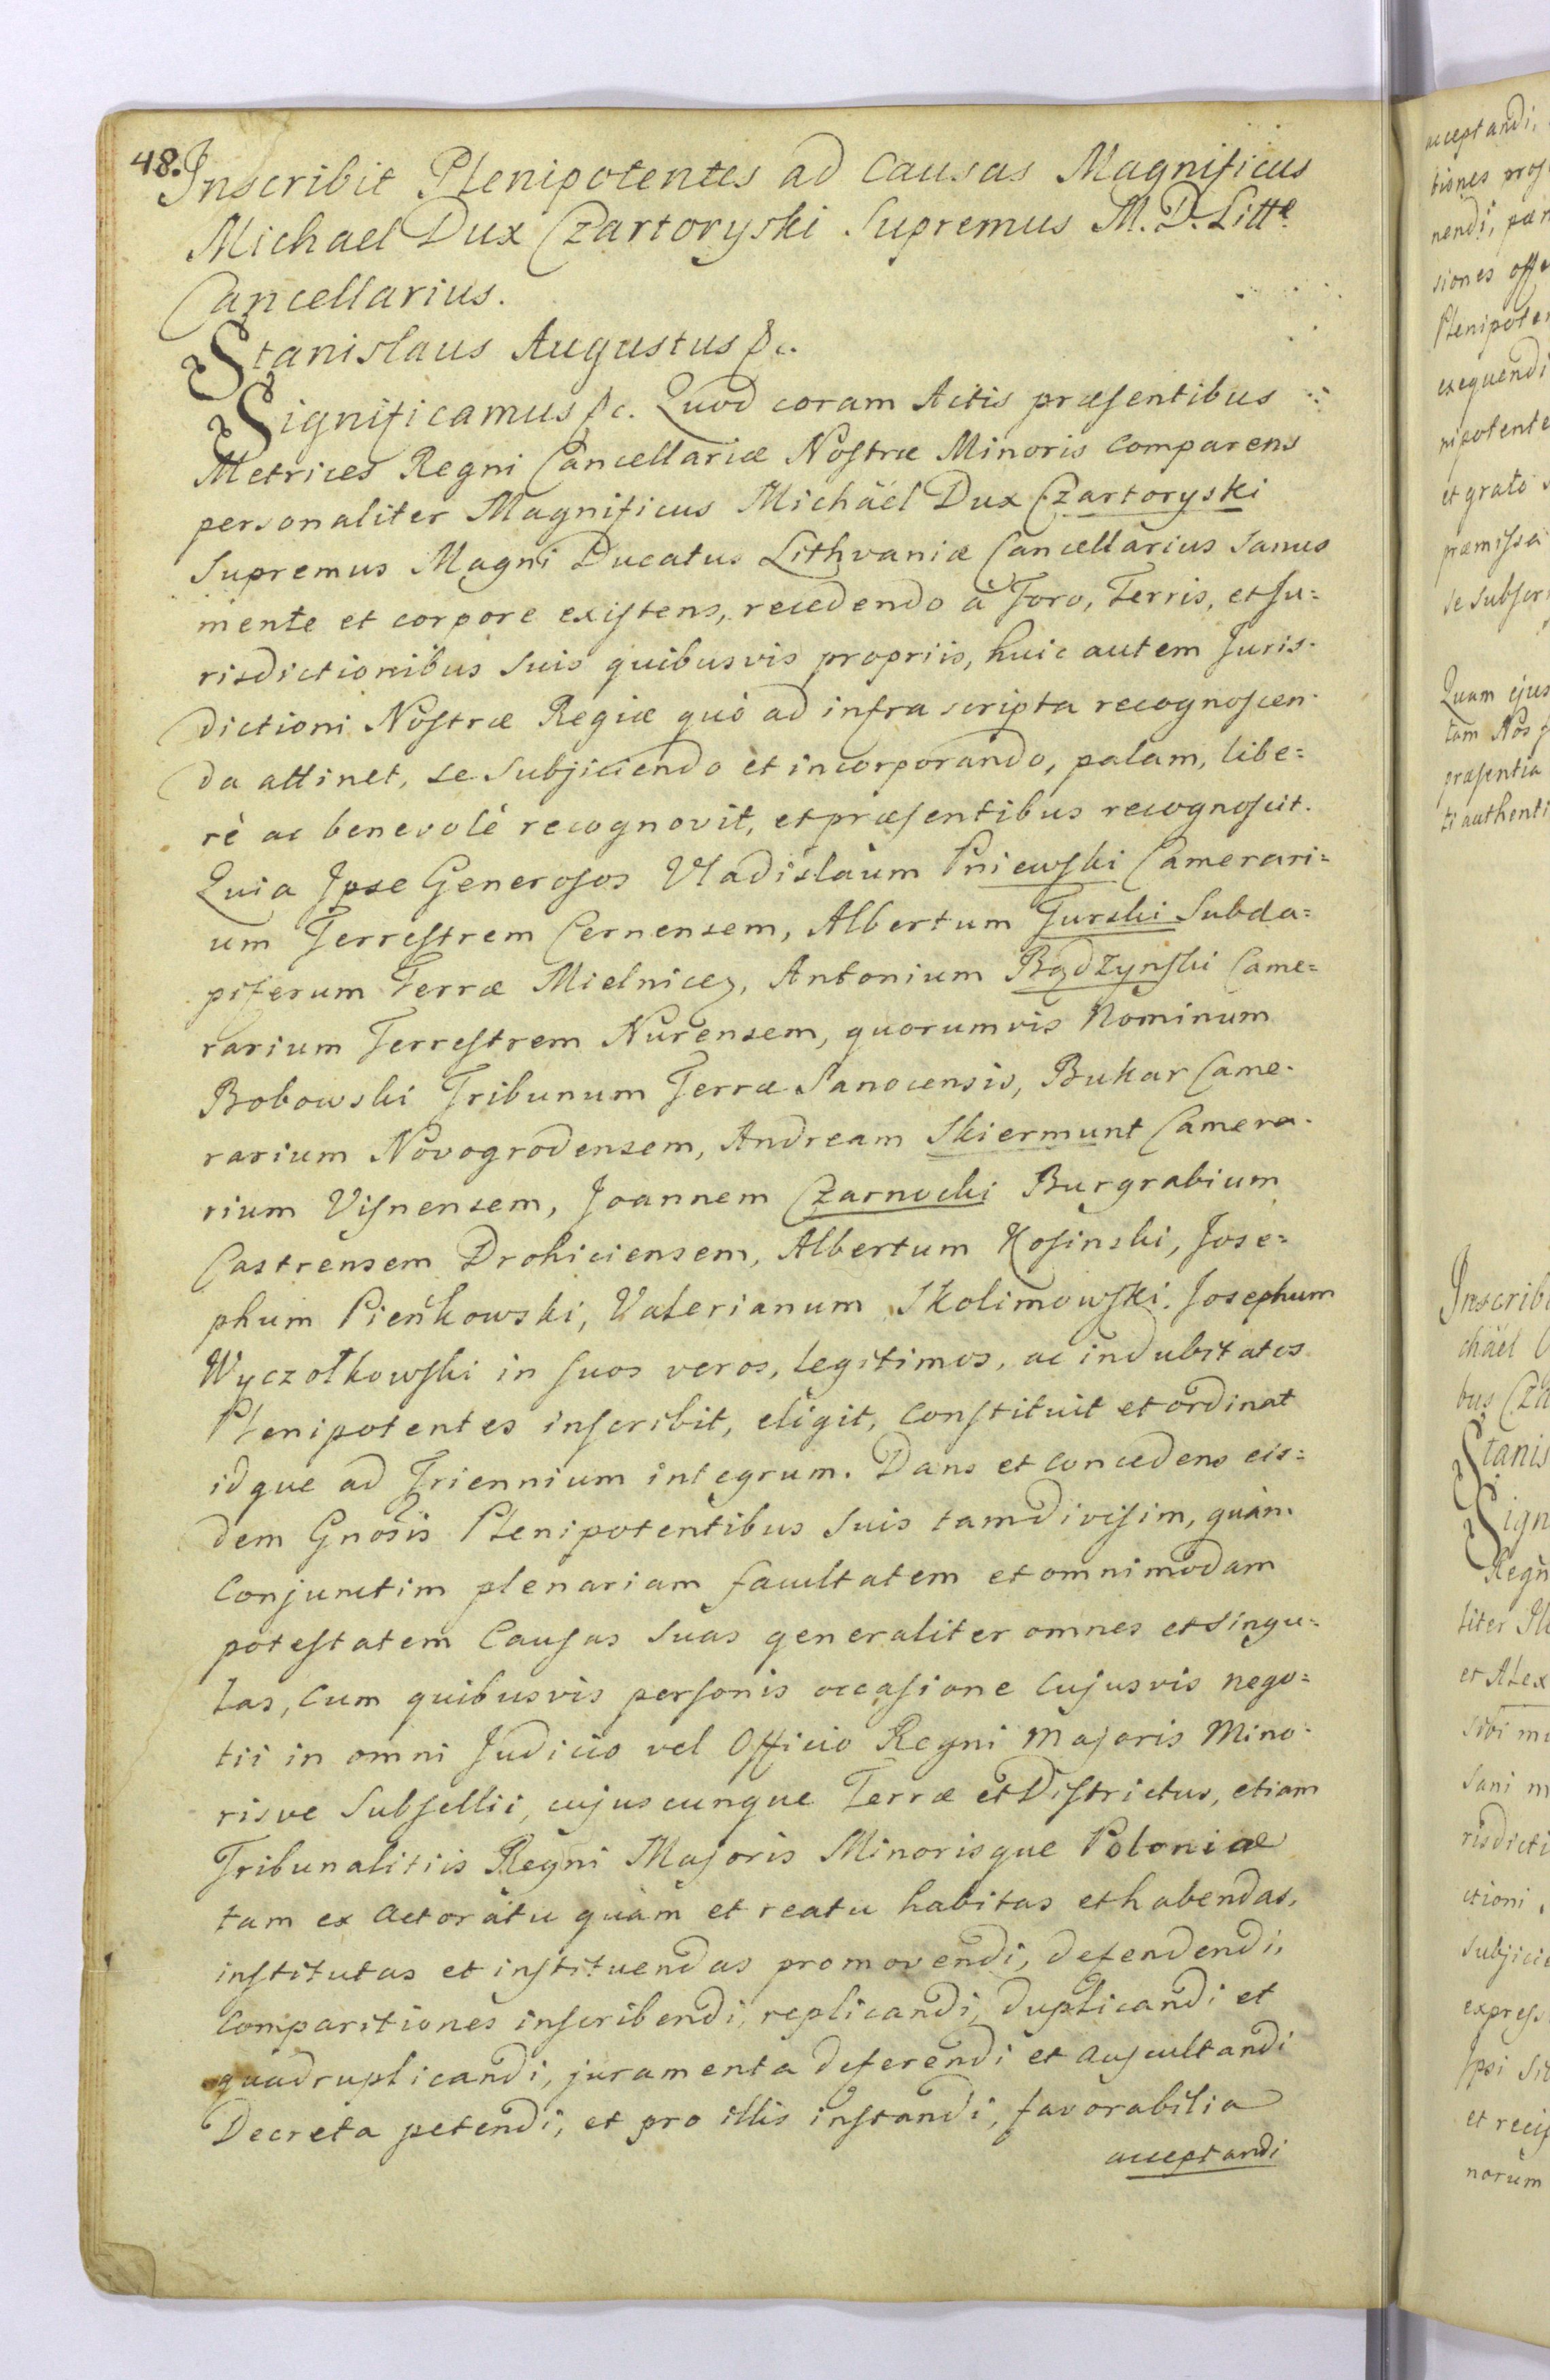 48.
Inscribit Plenipotentes ad Causas Magnificus
Michael Dux Czartoryski Supremus M. D. Littæ
Cancellarius.
Stanislaus Augustus &c.
Significamus &c. Quod coram Actis præsentibus
Metrices Regni Cancellariæ Nostræ Minoris Comparens
personaliter Magnificus Michäel Dux Czartoryski
Supremus Magni Ducatus Lithvaniæ Cancellarius Sanus
mente et corpore existens, recedendo à Foro, Terris, et Ju=
risdictionibus Suis quibusvis propriis, huic autem Juris-
dictioni Nostræ Regiæ quò ad infra scripta recognoscen-
da attinet, se Subjiciendo et incorporando, palam, libe=
rè ac benevolè recognovit, et præsentibus recognoscit.
Quia Ipse Generosos Vladislaum Pniewski Camerari=
um Terrestrem Cernensem, Albertum Turski Subda=
piferum Terræ Mielnicen, Antonium Bądzynski Came=
rarium Terrestrem Nurensem, quorumvis Nominum
Bobowski Tribunum Terræ Sanocensis, Buhar Came-
rarium Novogrodensem, Andream Skiermunt Camera-
rium Visnensem, Joannem Czarnocki Burgrabium
Castrensem Drohiciensem, Albertum Kosinski, Jose=
phum Pieńkowski, Valerianum Skolimowski. Josephum
Wyczołkowski in suos veros, legitimos, ac indubitatos
Plenipotentes inscribit, eligit, Constituit et ordinat
idque ad Triennium integrum. Dans et Concedens eis=
dem Gnosis Plenipotentibus Suis tam divisim, quàm
Conjunctim plenariam facultatem et omnimodam
potestatem Causas Suas generaliter omnes et singu=
las, Cum quibusvis personis occasione Cujusvis nego=
tii in omni Judicio vel Officio Regni Majoris Mino-
risve Subsellii, cujuscunque Terræ et Districtus, etiam
Tribunalitiis Regni Majoris Minorisque Poloniæ
tam ex actoratu quàm et reatu habitas et habendas,
institutas et instituendas promovendi, defendendi,
Comparitiones inscribendi, replicandi, duplicandi et
quadruplicandi, juramenta deferendi et auscultandi
Decreta petendi, et pro illis instandi, favorabilia
acceptandi
acceptandi,
tiones pros
nendi, pœn
siones offe
Plenipoten
exequendi
nipotente
et grato
præmissa
se subscr
Quam ejus
tam Nos
præsentia
ti authenti
Inscribi
chäel
bus Cza
Stanis
Sign
Regn
liter Il
et Alex
Sibi m
Sani m
risdicti
ctioni
Subjici
express
Ipsi Si
et recip
norum